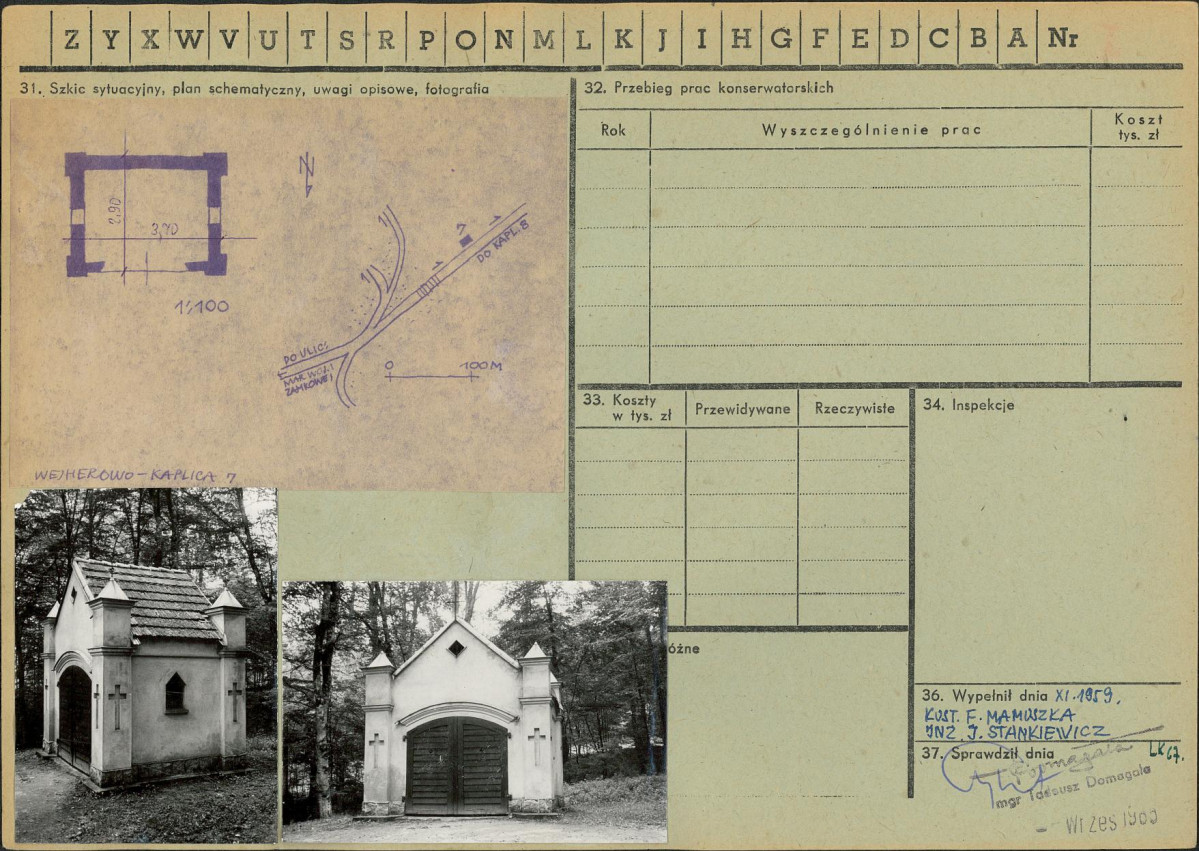 Z Y X W V U T S R P O N M L K J I H G F E D C B A Nr
31. Szkic sytuacyjny, plan schematyczny, uwagi opisowe, fotografia
2.90
3,70
1:100
N
7
DO KAPL. 8
DO ULIC:
ZAMKOWEJ
0 100 M
WEJHEROWO – KAPLICA 7
32. Przebieg prac konserwatorskich
Rok
Wyszczególnienie prac
Koszt
tys. zł
33. Koszty
w tys. zł
Przewidywane
Rzeczywiste
34. Inspekcje
óżne
36. Wypełnił dnia XI.1959.
KUST. F. MAMUSZKA
INŻ. J. STANKIEWICZ
37. Sprawdził dnia
Domagała
mgr Tadeusz Domagała